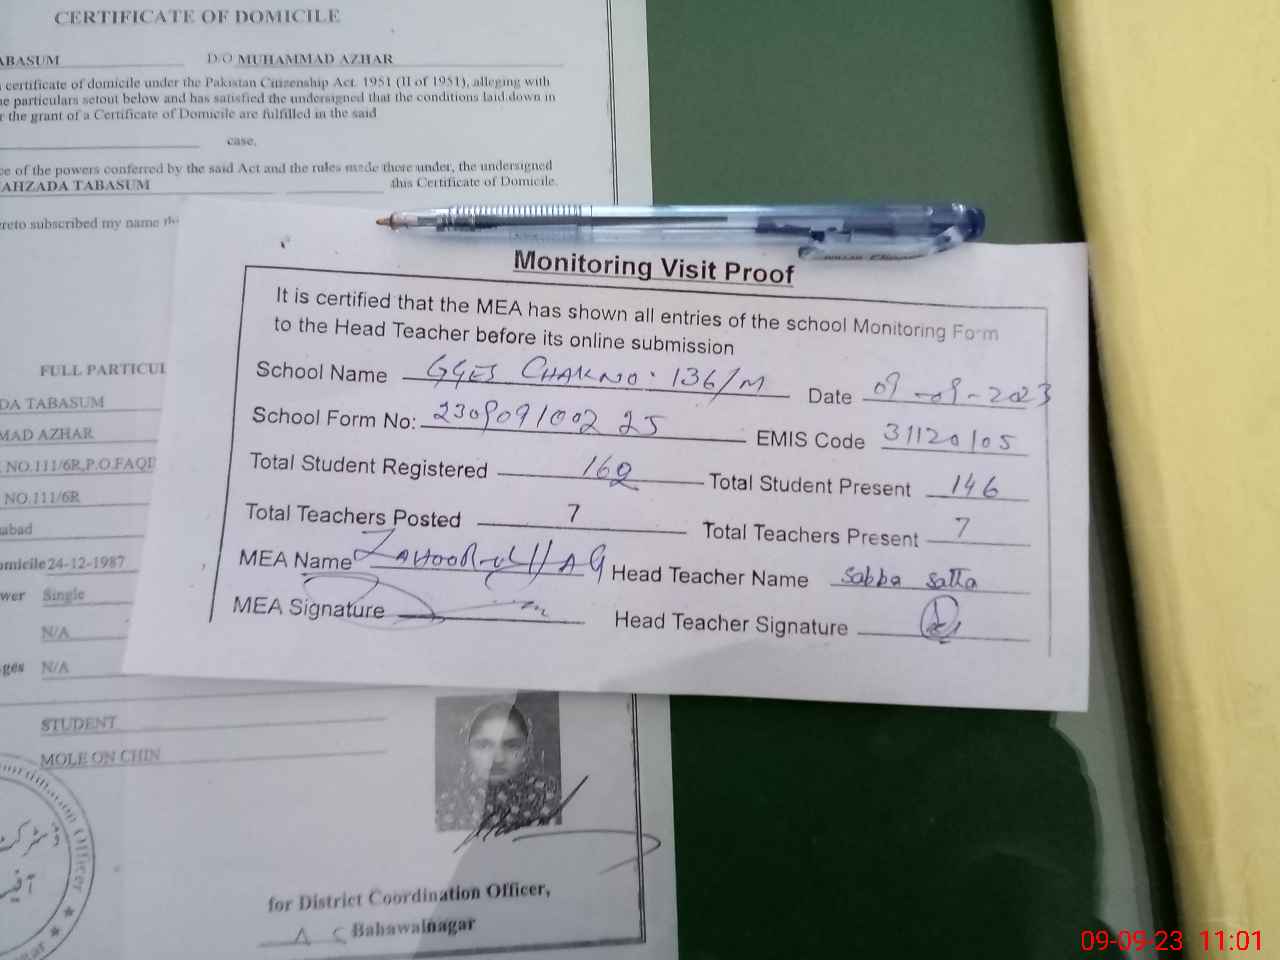 CERTIFICATE OF DOMICILE
ABASUM D/O MUHAMMAD AZHAR
certificate of domicile under the Pakistan Citizenship Act. 1951 (II of 1951), alleging with
e particulars setout below and has satisfied the undersigned that the conditions laid down in
r the grant of a Certificate of Domicile are fulfilled in the said
case,
ce of the powers conferred by the said Act and the rules made there under, the undersigned
AHZADA TABASUM this Certificate of Domicile.
ereto subscribed my name the
Monitoring Visit Proof
It is certified that the MEA has shown all entries of the school Monitoring Form
to the Head Teacher before its online submission
School Name GGES CHAK NO. 136/M Date 09-09-2023
School Form No: 2309091002 25 EMIS Code 31120105
Total Student Registered 162 Total Student Present 146
Total Teachers Posted 7 Total Teachers Present 7
MEA Name ZAHOOR-UL HAQ Head Teacher Name Sabba
MEA Signature Head Teacher Signature
FULL PARTICUL
DA TABASUM
MAD AZHAR
NO.111/6R,P.O.FAQI
NO.111/6R
abad
omicile 24-12-1987
wer Single
N/A
ges N/A
STUDENT
MOLE ON CHIN
for District Coordination Officer,
Bahawalnagar
09-09-23 11:01